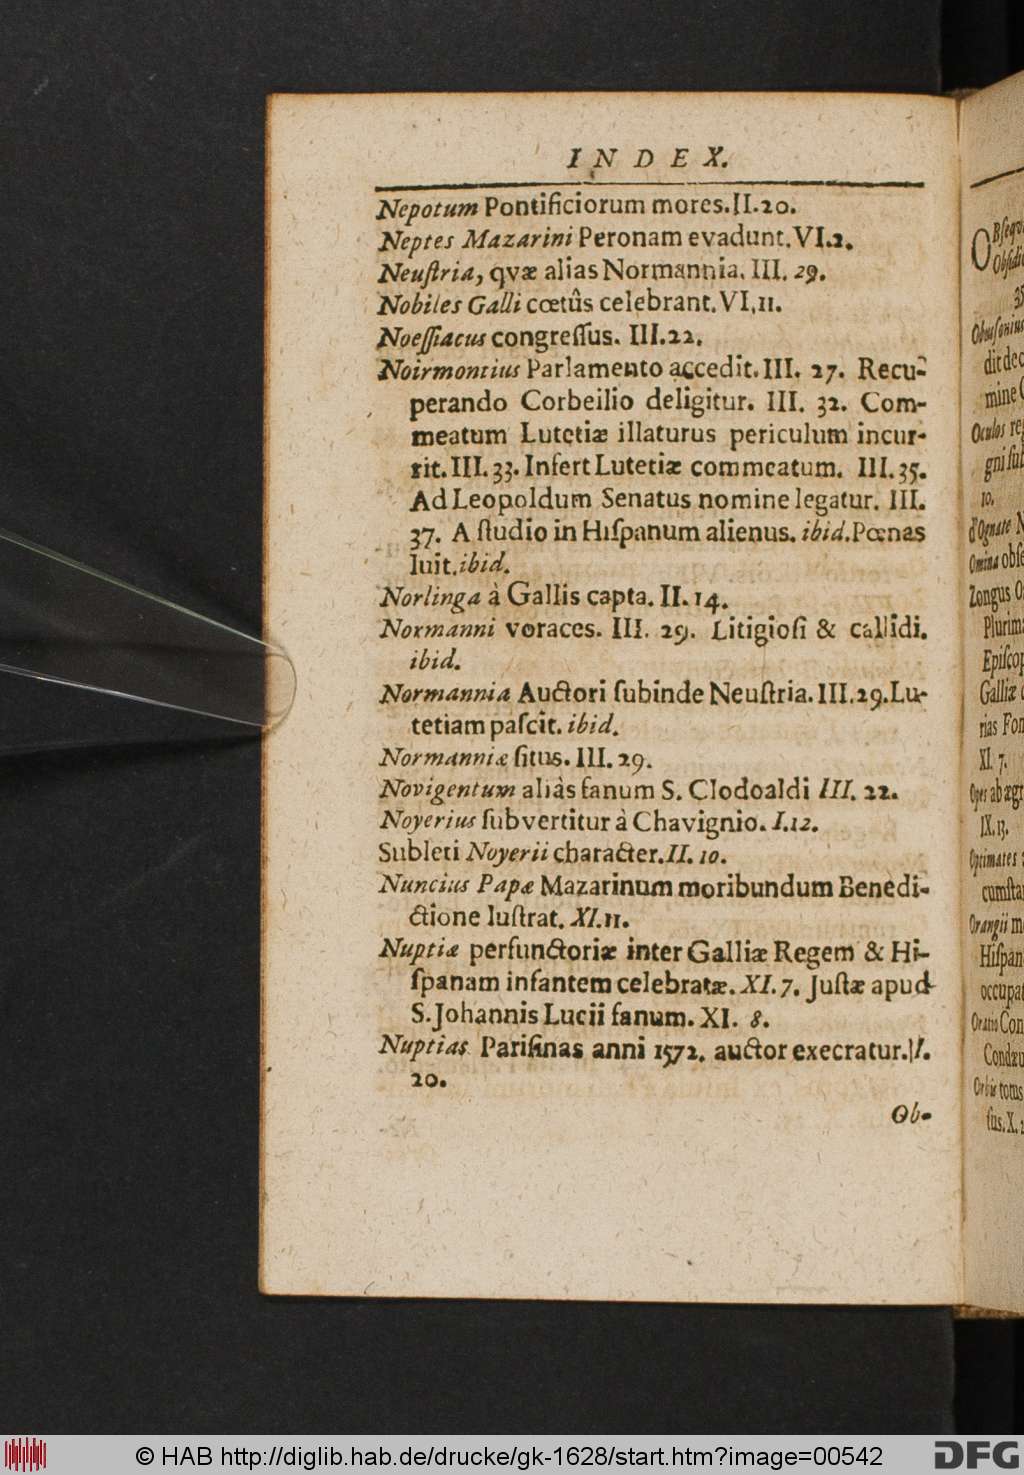 INDEX.
Nepotum Pontificiorum mores. II. 20.
Neptes Mazarini Peronam evadunt. VI. 2.
Neuſtria, qvæ alias Normannia. III. 29.
Nobiles Galli cœtûs celebrant. VI, 11.
Noeſſiacus congreſſus. III. 22.
Noirmontius Parlamento accedit. III. 27. Recu-
perando Corbeilio deligitur. III. 32. Com-
meatum Lutetiæ illaturus periculum incur-
rit. III. 33. Infert Lutetiæ commeatum. III. 35.
Ad Leopoldum Senatus nomine legatur. III.
37. A ſtudio in Hiſpanum alienus. ibid. Pœnas
luit. ibid.
Norlinga à Gallis capta. II. 14.
Normanni voraces. III. 29. Litigioſi & callidi.
ibid.
Normannia Auctori ſubinde Neuſtria. III. 29. Lu-
tetiam paſcit. ibid.
Normanniæ ſitus. III. 29.
Novigentum aliàs fanum S. Clodoaldi III. 22.
Noyerius ſubvertitur à Chavignio. I. 12.
Subleti Noyerii character. II. 10.
Nuncius Papæ Mazarinum moribundum Benedi-
ctione luſtrat. XI. 11.
Nuptiæ perfunctoriæ inter Galliæ Regem & Hi-
ſpanam infantem celebratæ. XI. 7. Juſtæ apud
S. Johannis Lucii fanum. XI. 8.
Nuptias Pariſinas anni 1572. auctor execratur. II.
20.
Ob-
OBſequi
Obſidi
35
Obusſonius
dit dec
mine
Oculos re
gni ſub
10.
d'Ognate
Omina obſe
Zongus
Plurima
Epiſcop
Galliæ
rias Fon
XI. 7.
Opes ab ægr
IX. 13.
Optimates
cumſta
Orangii
Hiſpan
occupat
Oratio Con
Condæu
Orbis totus
ſus. X. 2
© HAB http://diglib.hab.de/drucke/gk-1628/start.htm?image=00542
DFG